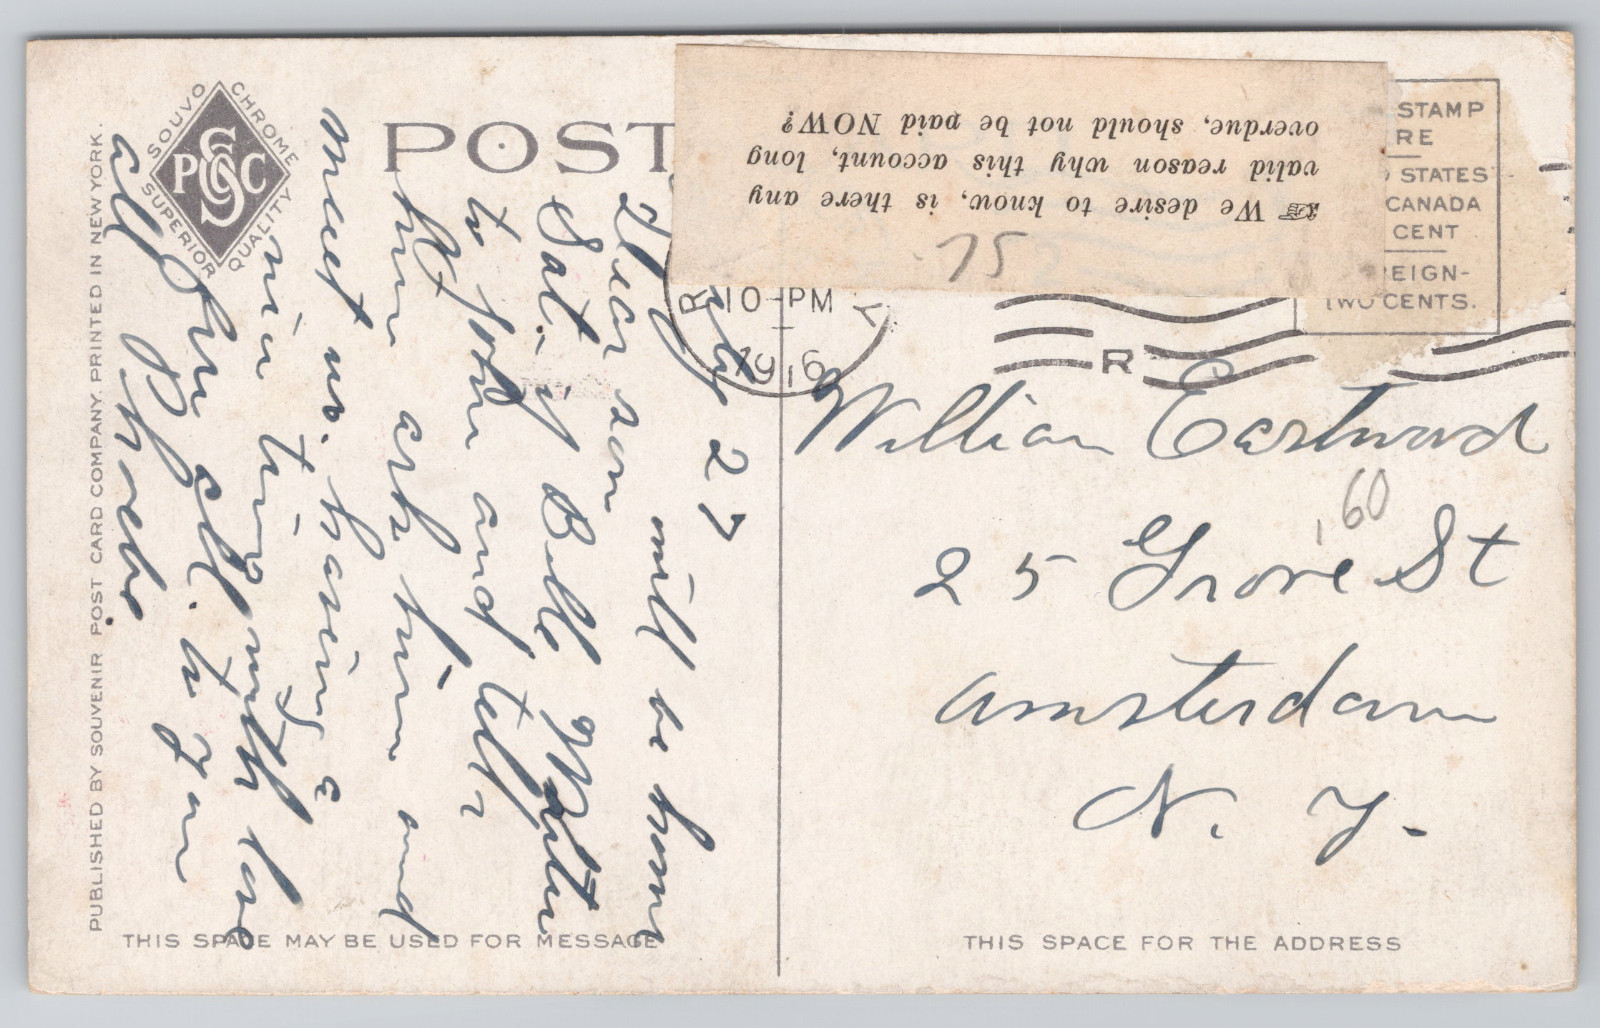 SOUVO CHROME
P S C
SUPERIOR QUALITY
POST
PUBLISHED BY SOUVENIR POST CARD COMPANY, PRINTED IN NEW YORK.
☞ We desire to know, is there any
valid reason why this account, long
overdue, should not be paid NOW?
75
STAMP
RE
STATES
CANADA
CENT
EIGN-
TWO CENTS.
R 10-PM Y
1916
R
July 27
Dear son will be home
Sat. if Bill
to John and tells
him ask him and
meet us. having a
nice time with love
all from all. to you
Phoebe
William Eastwood
.60
25 Grove St
Amsterdam
N. Y.
THIS SPACE MAY BE USED FOR MESSAGE
THIS SPACE FOR THE ADDRESS